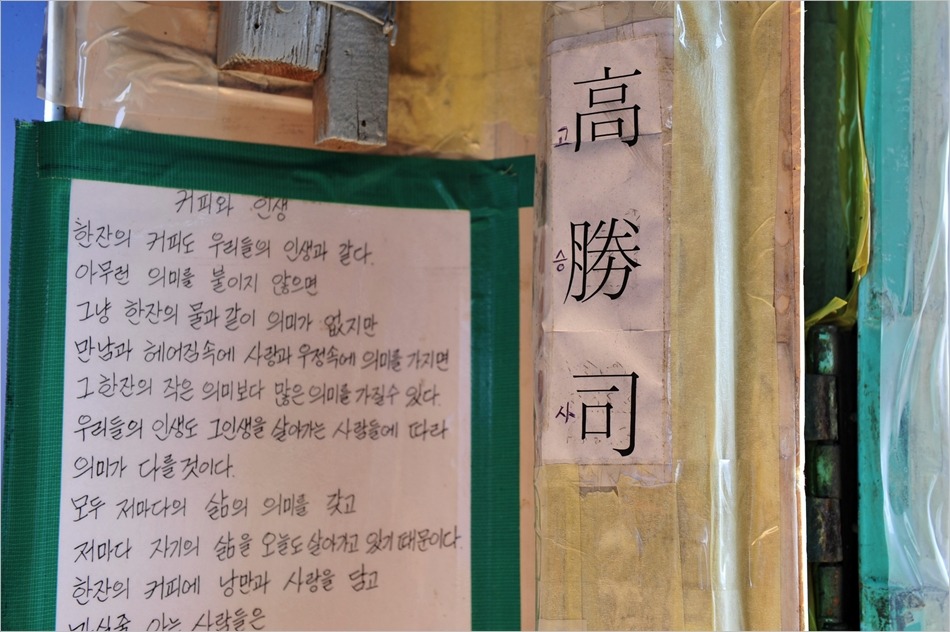 커피와 인생
한잔의 커피도 우리들의 인생과 같다.
아무런 의미를 붙이지 않으면
그냥 한잔의 물과 같이 의미가 없지만
만남과 헤어짐속에 사랑과 우정속에 의미를 가지면
그 한잔의 작은 의미보다 많은 의미를 가질수 있다.
우리들의 인생도 그인생을 살아가는 사람들에 따라
의미가 다를것이다.
모두 저마다의 삶의 의미를 갖고
저마다 자기의 삶을 오늘도 살아가고 있기때문이다.
한잔의 커피에 낭만과 사랑을 담고
아는 사람들은
高
고
勝
승
司
사